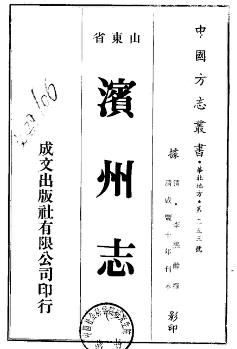 中國方志叢書・華北地方・第三五三號
據
清・李熙齡纂
清咸豐十年刊本
影印
山東省
濱州志
成文出版社有限公司印行